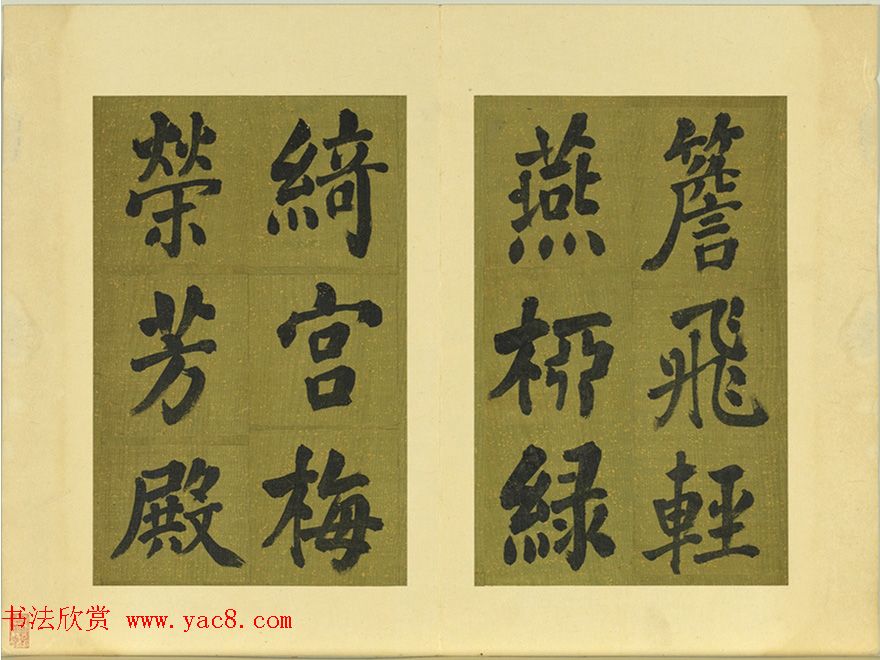 簷飛輕
燕栁緑
綺宮梅
榮芳殿
书法欣赏 www.yac8.com